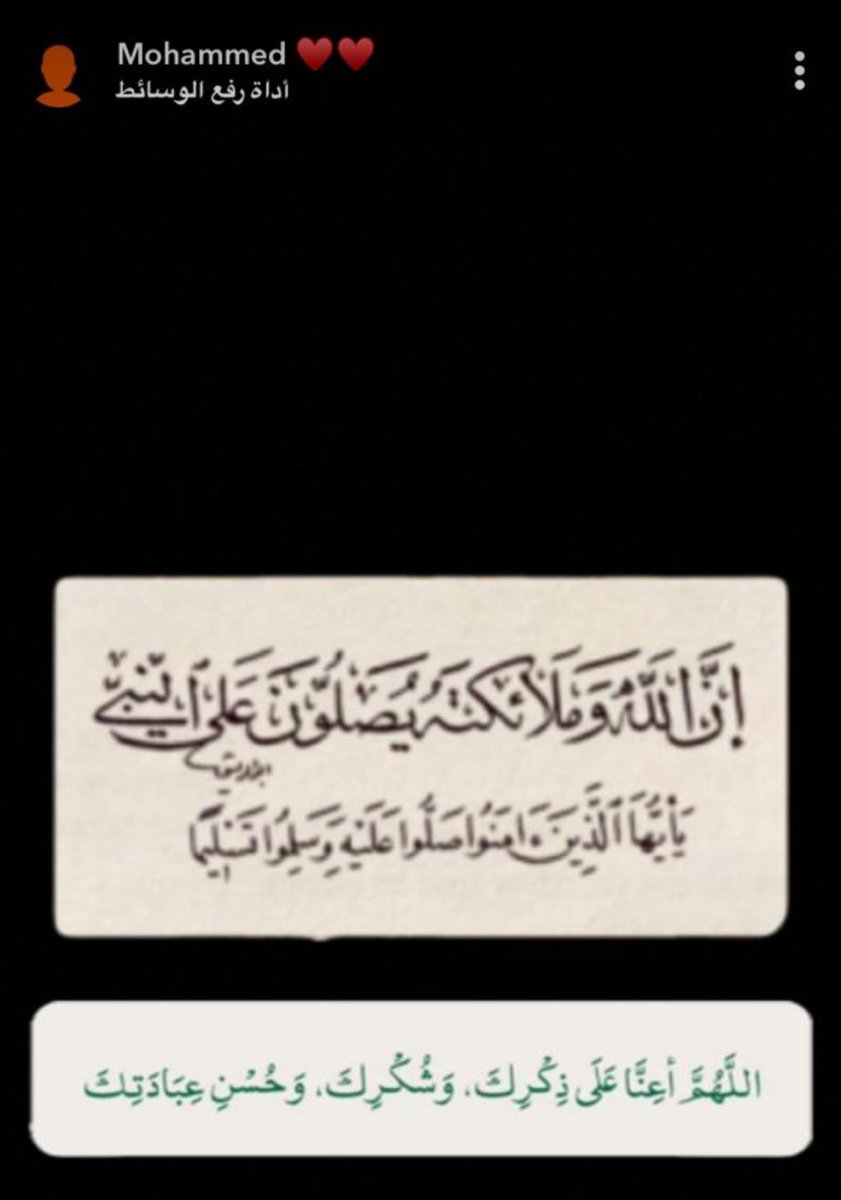 Mohammed ♥️♥️
أداة رفع الوسائط
إِنَّ اللَّهَ وَمَلَائِكَتَهُ يُصَلُّونَ عَلَى النَّبِيِّ
يَٰأَيُّهَا الَّذِينَ ءَامَنُوا صَلُّوا عَلَيْهِ وَسَلِّمُوا تَسْلِيمًا
اللَّهُمَّ أَعِنَّا عَلَى ذِكْرِكَ، وَشُكْرِكَ، وَحُسْنِ عِبَادَتِكَ